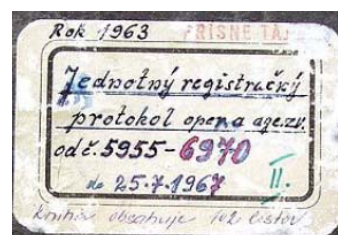 Rok 1963 PRÍSNE TAJ
Jednotný registračký
protokol oper.a age.zv.
od č. 5955-6970
do 25.7.1967
II.
Kniha obsahuje 102 listov